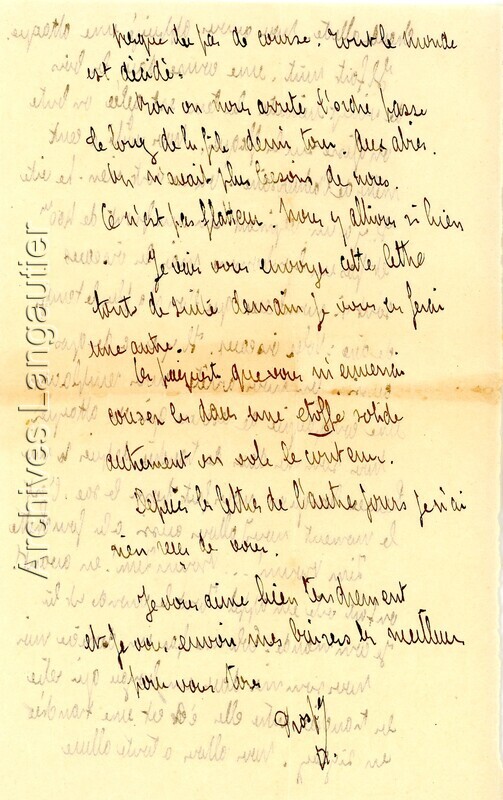 presque du pas de course. Tout le monde
est décidé.
on nous arrête l'ordre passe
le long de la file demi tour. Aux abris.
On n'avait plus besoin de nous.
Ce n'est pas flatteur. Nous y allions si bien
Je vais vous envoyer cette lettre
tout de suite demain je vous en ferai
une autre.
Les paquets que vous m'enverrai
cousez les dans une étoffe solide
autrement on vole le contenu.
Depuis les lettres de l'autre jours je n'ai
rien reçu de vous.
Je vous aime bien tendrement
et je vous envoie mes baisers les meilleurs
pour vous tous
Archives Langautier